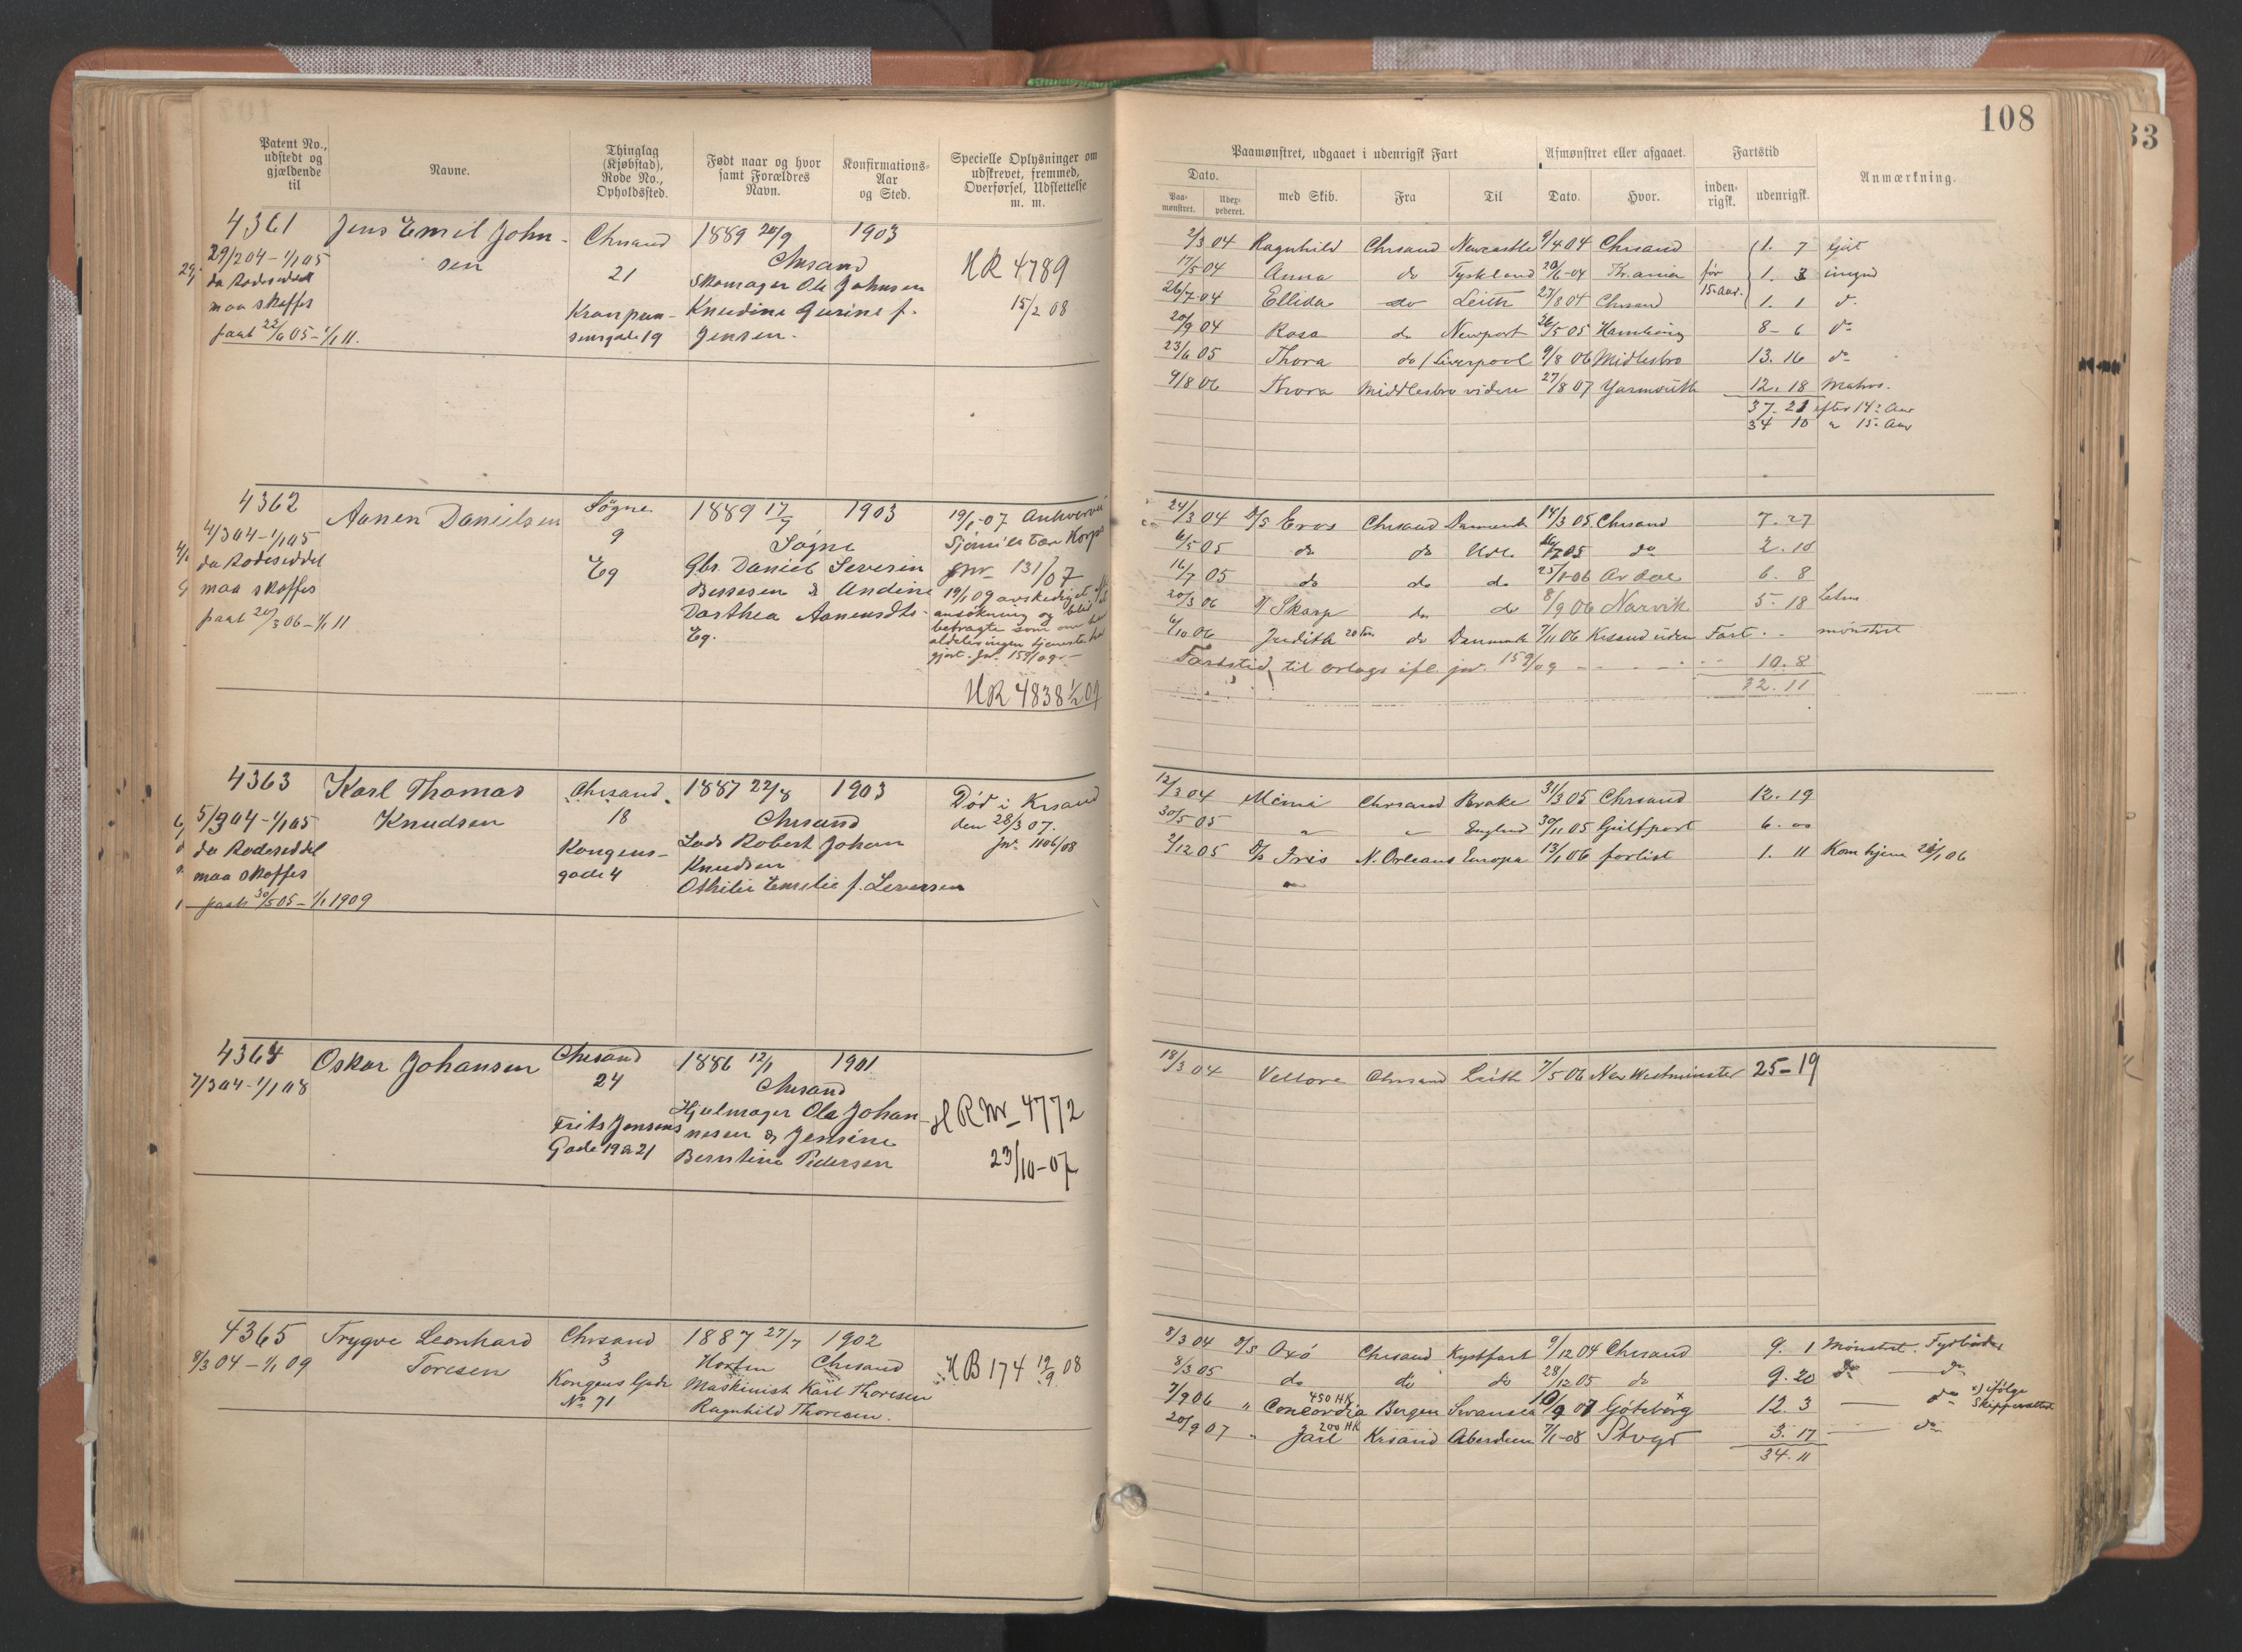 108
33
Patent No., udstedt og gjældende til
Navne.
Thinglag (Kjøbstad), Rode No., Opholdssted.
Født naar og hvor samt Forældres Navn.
Konfirmations-Aar og Sted.
Specielle Oplysninger om udskrevet, fremmed, Overførsel, Udslettelse m. m.
Paamønstret, udgaaet i udenrigsk Fart
Afmønstret eller afgaaet.
Fartstid
Anmærkning.
Dato.
Paa-mønstret.
Udex-pederet.
med Skib.
Fra
Til
Dato.
Hvor.
inden-rigsk.
udenrigsk.
4361 Jens Emil John- Chrsand 1889 20/9 1903
29/2 04 - 1/1 05 sen Chrsand
da Rodeseddel 21 Skomager Ole Johnsen HR 4789
maa skaffes Knudine Gurine f. 15/2 08
paat 22/6 05 - 1/1 11. sensgade 19 Jensen.
2/3 04 Ragnhild Chrsand Newcastle 9/4 04 Chrsand 1. 7
17/5 04 Anna do Tyskland Kr.ania før 1. 3
26/7 04 Ellida do Leith 27/8 04 Chrsand 15 Aar. 1. 1 d.
20/9 04 Rosa do Newport 26/5 05 Hamburg 8 - 6 do
23/6 05 Thora do Liverpool 9/8 06 Midlesbro 13. 16 do
9/8 06 Thora Middlesbro videre 27/8 07 Yarmouth 12. 18 Matros.
37. 21 efter 14 Aar
34 10 " 15 Aar
4362 Aanen Danielsen Søgne 1889 17/9 1903
4/3 04 - 1/1 05 9 Søgne
da Rodeseddel Eg Gbr. Daniel Severin
maa skaffes Bessesen & Andine
paat 20/3 06 - 1/1 11 Dorthea Aanensdtr
Eg.
19/1 07
131/07
19/1 09 avskediget
ansøkning og
betragte som om
aldeles ingen tjeneste
gjort. Jnr. 159/09
HR 4838 1/2 09
24/3 04 D/S Eros Chrsand Danmark 14/3 05 Chrsand 7. 27
6/5 05 do do Udl. do 2. 10
16/7 05 do do do 25/1 06 Ardal 6. 8
20/3 06 Skarp do do 8/9 06 Narvik 5. 18
6/10 06 Judith do Danmark 7/11 06 Krsand uden Fart mønstret
Fartstid til orlogs ifl. jnr. 159/09 10. 8
32. 11
4363 Karl Thomas Chrsand 1887 22/8 1903
5/3 04 - 1/1 05 Knudsen 18 Chrsand
da Rodeseddel Kongens- Lods Robert Johan
maa skaffes gade 4 Knudsen
paat 30/5 05 - 1/1 1909 Othilie Emelie f. Seversen
Død i Krsand
den 28/3 07.
Jnr. 1106/08
12/3 04 Mimi Chrsand Brake 31/3 05 Chrsand 12. 19
30/5 05 " " England 30/11 05 Gulfport 6. 00
2/12 05 Iris N. Orleans Europa 13/1 06 forlist 1. 11 Kom hjem 26/1 06
4364 Oskar Johansen Chrsand 1886 12/1 1901
7/3 04 - 1/1 08 24 Chrsand
Frits Jensens Hjulmager Ola Johan-
Gade 19 a 21 nesen & Jensine
Berntine Pedersen
HR Nr 4772
23/10-07
18/3 04 Vellore Chrsand Leith 7/5 06 New Westminster 25 - 19
4365 Trygve Leonhard Chrsand 1887 27/7 1902
8/3 04 - 1/1 09 Toresen 3 Horten Chrsand
Kongens Gade Maskinist Karl Thoresen
No 71 Ragnhild Thoresen.
HB 174 12/9 08
8/3 04 D/S Oxö Chrsand Kystfart 9/12 04 Chrsand 9. 1 Mønstret Fyrbøder
8/3 05 do do do 28/12 05 do 9. 20 do do
7/9 06 " Concordia 450 HK Bergen Swansea 10/9 07 Göteborg x 12. 3 do x) ifølge Skipperattest
20/9 07 " Jarl 200 HK Krsand Aberdeen 7/1-08 Stvgr 3. 17 do
34. 11